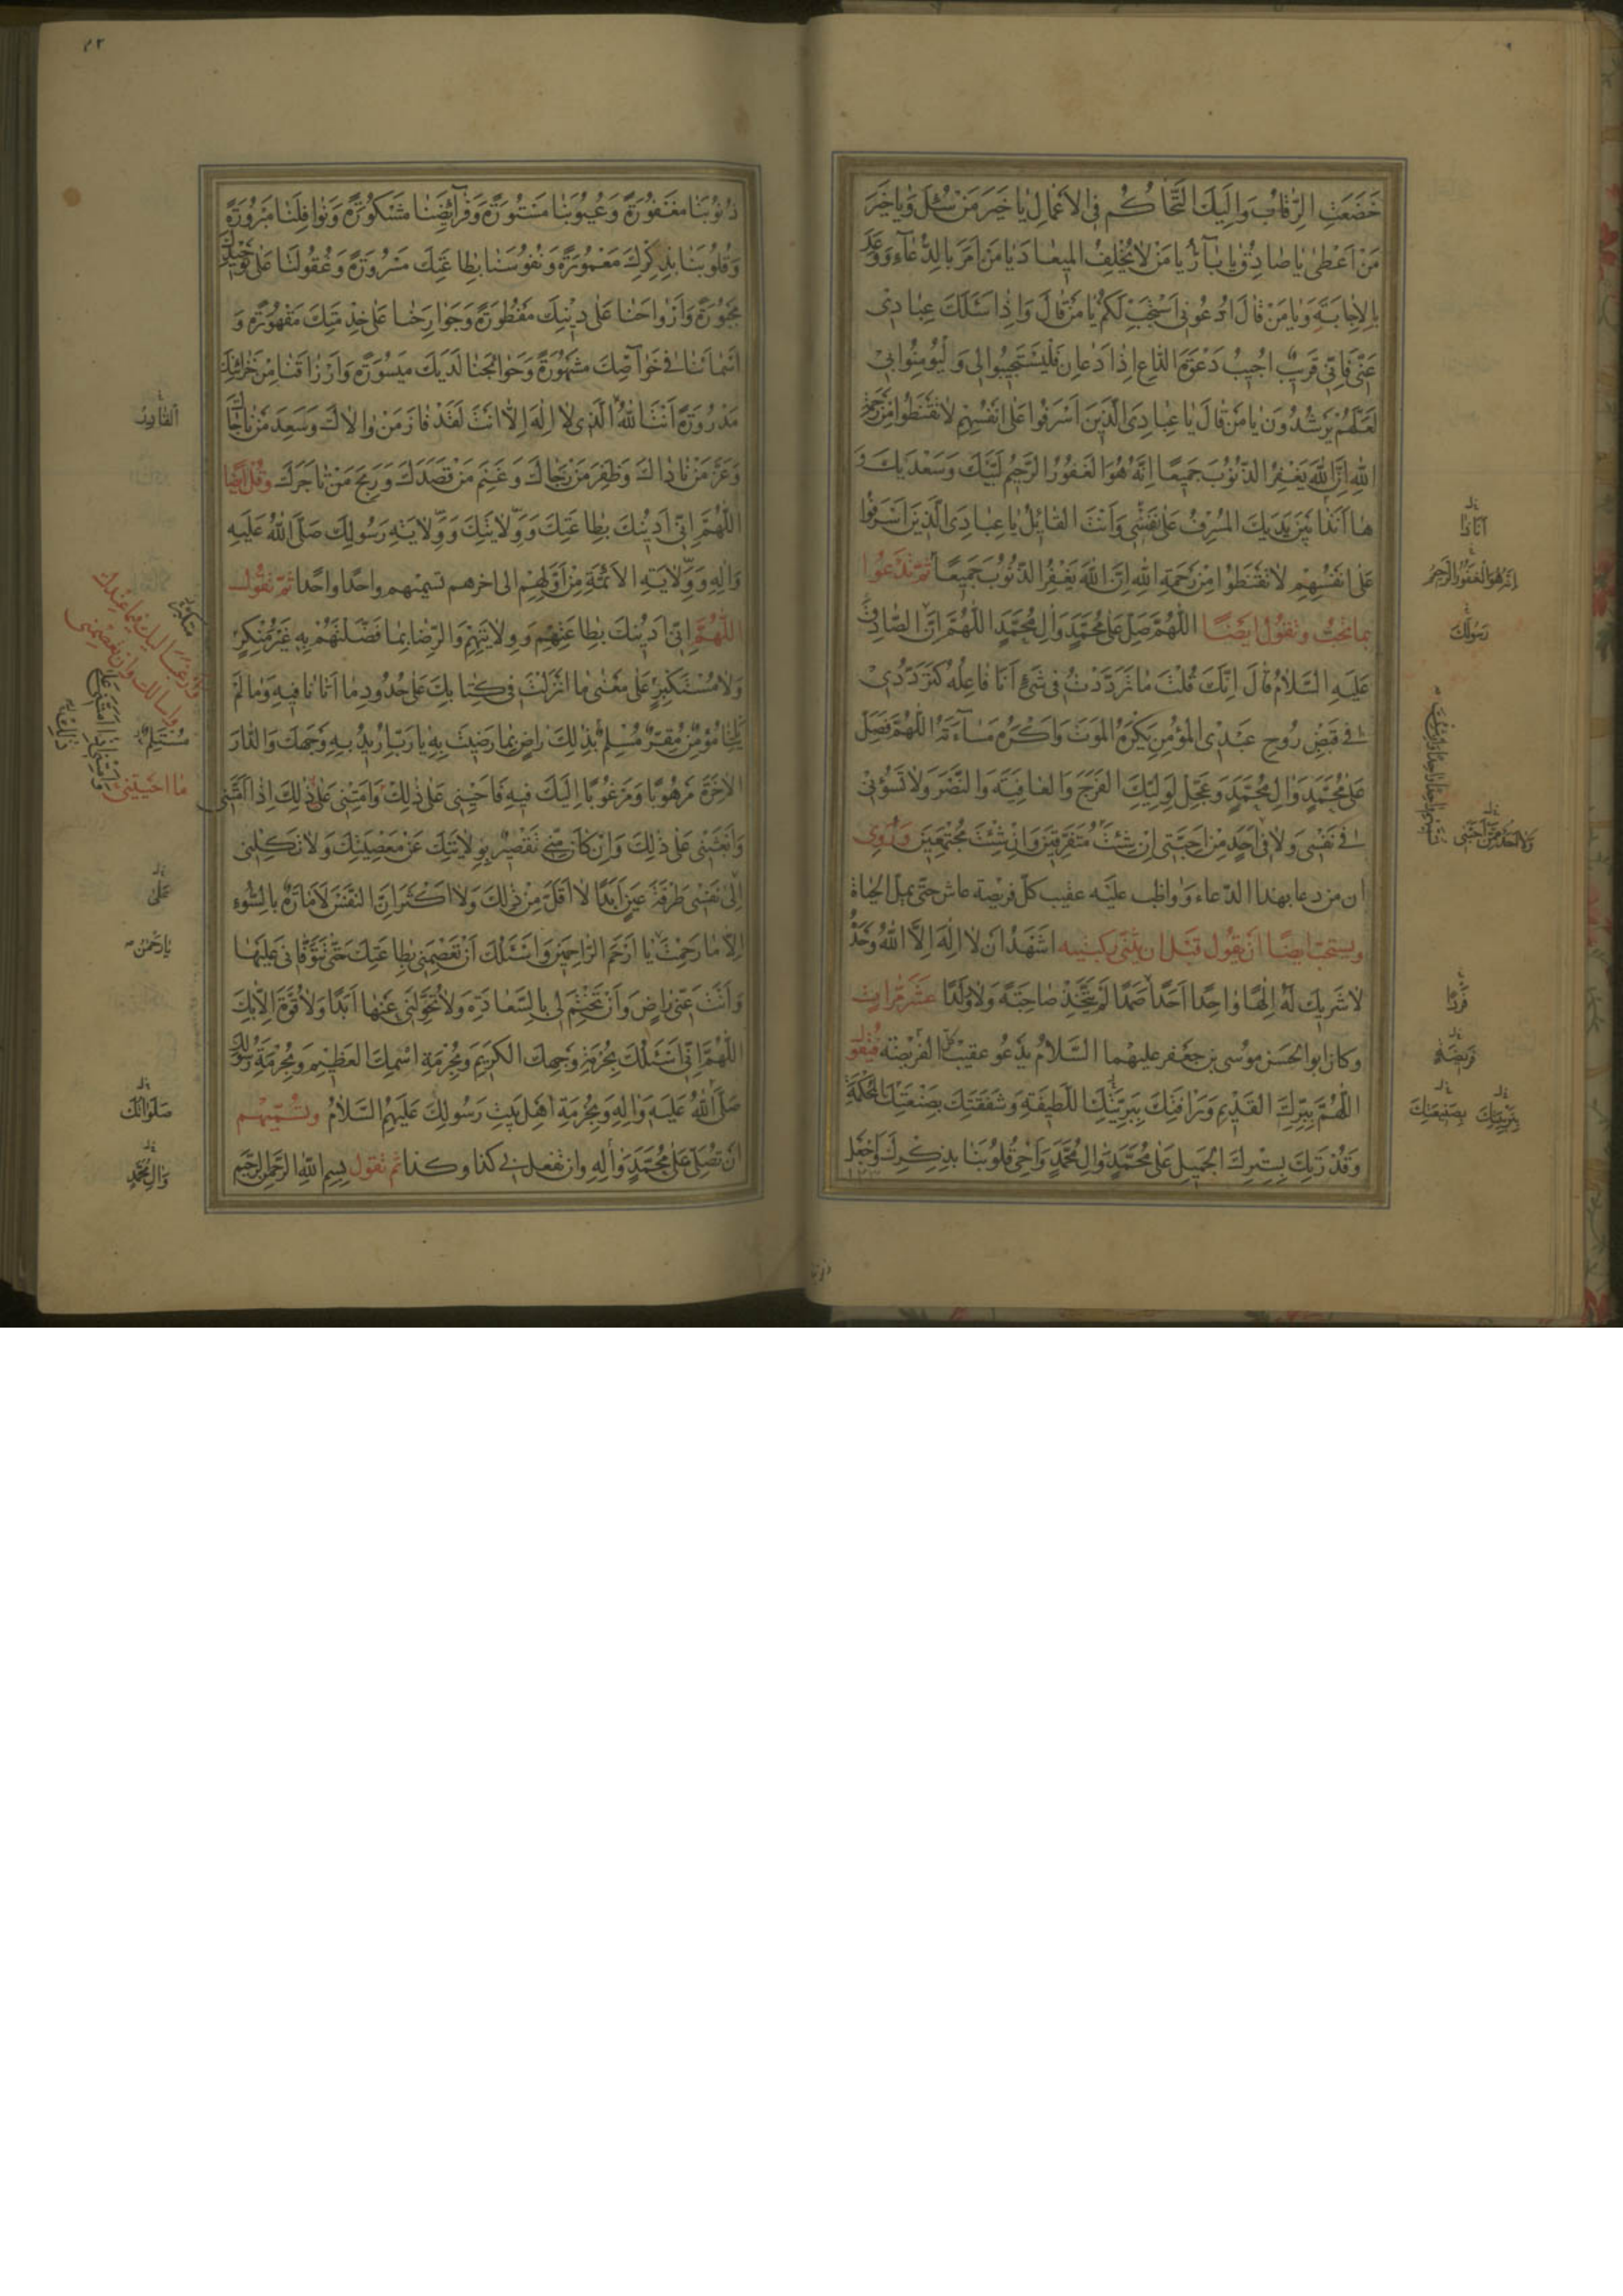 خَضَعَتِ الرِّقَابُ وَاِلَيْكَ التَّحَاكُمُ فِي الْاَعْمَالِ يَا خَيْرَ مَنْ سُئِلَ وَيَا خَيْرَ
مَنْ اَعْطىٰ يَا صَادِقُ يَا بَآرُّ يَا مَنْ لَا يُخْلِفُ الْمِيعَادَ يَا مَنْ اَمَرَ بِالدُّعَآءِ وَوَعَدَ
بِالْاِجَابَةِ وَيَا مَنْ قَالَ ادْعُونِي اَسْتَجِبْ لَكُمْ يَا مَنْ قَالَ وَاِذَا سَئَلَكَ عِبَادِي
عَنِّي فَاِنِّي قَرِيبٌ اُجِيبُ دَعْوَةَ الدَّاعِ اِذَا دَعَانِ فَلْيَسْتَجِيبُوا لِي وَلْيُؤْمِنُوا بِي
لَعَلَّهُمْ يَرْشُدُونَ يَا مَنْ قَالَ يَا عِبَادِيَ الَّذِينَ اَسْرَفُوا عَلىٰ اَنْفُسِهِمْ لَا تَقْنَطُوا مِنْ رَحْمَةِ
اللهِ اِنَّ اللهَ يَغْفِرُ الذُّنُوبَ جَمِيعًا اِنَّهُ هُوَ الْغَفُورُ الرَّحِيمُ لَبَّيْكَ وَسَعْدَيْكَ وَ
هَا اَنَذَا بَيْنَ يَدَيْكَ الْمُسْرِفُ عَلىٰ نَفْسِي وَاَنْتَ الْقَائِلُ يَا عِبَادِيَ الَّذِينَ اَسْرَفُوا
عَلىٰ اَنْفُسِهِمْ لَا تَقْنَطُوا مِنْ رَحْمَةِ اللهِ اِنَّ اللهَ يَغْفِرُ الذُّنُوبَ جَمِيعًا ثُمَّ تَدْعُوا
بِمَا تُحِبُّ وَتَقُولُ اَيْضًا اللّٰهُمَّ صَلِّ عَلىٰ مُحَمَّدٍ وَالِ مُحَمَّدٍ اللّٰهُمَّ اِنَّ الصَّادِقَ
عَلَيْهِ السَّلَامُ قَالَ اِنَّكَ قُلْتَ مَا تَرَدَّدْتُ فِي شَيْءٍ اَنَا فَاعِلُهُ كَتَرَدُّدِي
فِي قَبْضِ رُوحِ عَبْدِي الْمُؤْمِنِ يَكْرَهُ الْمَوْتَ وَاَكْرَهُ مَسَآءَتَهُ اللّٰهُمَّ فَصَلِّ
عَلىٰ مُحَمَّدٍ وَالِ مُحَمَّدٍ وَعَجِّلْ لِوَلِيِّكَ الْفَرَجَ وَالْعَافِيَةَ وَالنَّصْرَ وَلَا تَسُؤْنِي
فِي نَفْسِي وَلَا فِي اَحَدٍ مِنْ اَحِبَّتِي اِنْ شِئْتَ مُتَفَرِّقِينَ وَاِنْ شِئْتَ مُجْتَمِعِينَ وَرُوِيَ
ان من دعا بهذا الدعاء وواظب عليه عقيب كل فريضة عاش حتى يمل الحياة
ويستحب ايضا ان يقول قبل ان يثني ركبتيه اَشْهَدُ اَنْ لَا اِلٰهَ اِلَّا اللهُ وَحْدَهُ
لَا شَرِيكَ لَهُ اِلٰهًا وَاحِدًا اَحَدًا صَمَدًا لَمْ يَتَّخِذْ صَاحِبَةً وَلَا وَلَدًا عَشْرَ مَرَّاتٍ
وكان ابو الحسن موسى بن جعفر عليهما السلام يدعو عقيب كل الفريضة فيقول
اللّٰهُمَّ بِبِرِّكَ الْقَدِيمِ وَرَافَتِكَ بِبَرِيَّتِكَ اللَّطِيفَةِ وَشَفَقَتِكَ بِصَنْعَتِكَ الْمُحْكَمَةِ
وَقُدْرَتِكَ بِسِتْرِكَ الْجَمِيلِ صَلِّ عَلىٰ مُحَمَّدٍ وَالِ مُحَمَّدٍ وَاَحْيِ قُلُوبَنَا بِذِكْرِكَ وَاجْعَلْ
اَنَا ذَا
اِنَّهُ هُوَ الْغَفُورُ الرَّحِيمُ
رَسُولَكَ
فَرْدًا
فَرِيضَةٍ
بِتَرْبِيَتِكَ بِصَنِيعَتِكَ
ذُنُوبَنَا مَغْفُورَةً وَعُيُوبَنَا مَسْتُورَةً وَفَرَآئِضَنَا مَشْكُورَةً وَنَوَافِلَنَا مَبْرُورَةً
وَقُلُوبَنَا بِذِكْرِكَ مَعْمُورَةً وَنُفُوسَنَا بِطَاعَتِكَ مَسْرُورَةً وَعُقُولَنَا عَلىٰ تَوْحِيدِكَ
مَجْبُورَةً وَاَرْوَاحَنَا عَلىٰ دِينِكَ مَفْطُورَةً وَجَوَارِحَنَا عَلىٰ خِدْمَتِكَ مَقْهُورَةً وَ
اَسْمَائَنَا فِي خَوَآصِّكَ مَشْهُورَةً وَحَوَائِجَنَا لَدَيْكَ مَيْسُورَةً وَاَرْزَاقَنَا مِنْ خَزَائِنِكَ
مَدْرُورَةً اَنْتَ اللهُ الَّذِي لَا اِلٰهَ اِلَّا اَنْتَ لَقَدْ فَازَ مَنْ وَالَاكَ وَسَعِدَ مَنْ نَاجَاكَ
وَعَزَّ مَنْ نَادَاكَ وَظَفِرَ مَنْ رَجَاكَ وَغَنِمَ مَنْ قَصَدَكَ وَرَبِحَ مَنْ تَاجَرَكَ وَقُلْ اَيْضًا
اللّٰهُمَّ اِنِّي اَدِينُكَ بِطَاعَتِكَ وَوِلَايَتِكَ وَوِلَايَةِ رَسُولِكَ صَلَّى اللهُ عَلَيْهِ
وَالِهِ وَوِلَايَةِ الْاَئِمَّةِ مِنْ اَوَّلِهِمْ اِلى اخِرِهِمْ تسميهم واحدًا واحدًا ثُمَّ تَقُولُ
اللّٰهُمَّ اِنِّي اَدِينُكَ بِطَاعَتِهِمْ وَوِلَايَتِهِمْ وَالرِّضَا بِمَا فَضَّلْتَهُمْ بِهِ غَيْرَ مُنْكِرٍ
وَلَا مُسْتَكْبِرٍ عَلىٰ مَعْنىٰ مَا اَنْزَلْتَ فِي كِتَابِكَ عَلىٰ حُدُودِ مَا اَتَانَا فِيهِ وَمَا لَمْ
يَاْتِنَا مُؤْمِنٌ مُقِرٌّ مُسَلِّمٌ بِذٰلِكَ رَاضٍ بِمَا رَضِيتَ بِهِ يَا رَبِّ اُرِيدُ بِهِ وَجْهَكَ وَالدَّارَ
الْاخِرَةَ مَرْهُوبًا وَمَرْغُوبًا اِلَيْكَ فِيهِ فَاَحْيِنِي عَلىٰ ذٰلِكَ وَاَمِتْنِي عَلىٰ ذٰلِكَ اِذَا اَمَتَّنِي
وَابْعَثْنِي عَلىٰ ذٰلِكَ وَاِنْ كَانَ مِنِّي تَقْصِيرٌ بِوِلَايَتِكَ عَنْ مَعْصِيَتِكَ وَلَا تَكِلْنِي
اِلىٰ نَفْسِي طَرْفَةَ عَيْنٍ اَبَدًا لَا اَقَلَّ مِنْ ذٰلِكَ وَلَا اَكْثَرَ اِنَّ النَّفْسَ لَاَمَّارَةٌ بِالسُّوءِ
اِلَّا مَا رَحِمْتَ يَا اَرْحَمَ الرَّاحِمِينَ وَاَسْئَلُكَ اَنْ تَعْصِمَنِي بِطَاعَتِكَ حَتّىٰ تَتَوَفَّانِي عَلَيْهَا
وَاَنْتَ عَنِّي رَاضٍ وَاَنْ تَخْتِمَ لِي بِالسَّعَادَةِ وَلَا تُحَوِّلَنِي عَنْهَا اَبَدًا وَلَا قُوَّةَ اِلَّا بِكَ
اللّٰهُمَّ اِنِّي اَسْئَلُكَ بِحُرْمَةِ وَجْهِكَ الْكَرِيمِ وَبِحُرْمَةِ اسْمِكَ الْعَظِيمِ وَبِحُرْمَةِ رَسُولِكَ
صَلَّى اللهُ عَلَيْهِ وَالِهِ وَبِحُرْمَةِ اَهْلِ بَيْتِ رَسُولِكَ عَلَيْهِمُ السَّلَامُ وَتُسَمِّيهِمْ
اَنْ تُصَلِّيَ عَلىٰ مُحَمَّدٍ وَالِهِ وان تفعل بي كذا وكذا ثُمَّ تَقُولُ بِسْمِ اللهِ الرَّحْمٰنِ الرَّحِيمِ
مُسْتَسْلِمٌ
مَا اَحْيَيْتَنِي
عَلىٰ
يَا رَحْمٰنُ
صَلَوَاتُكَ
وَالِ مُحَمَّدٍ